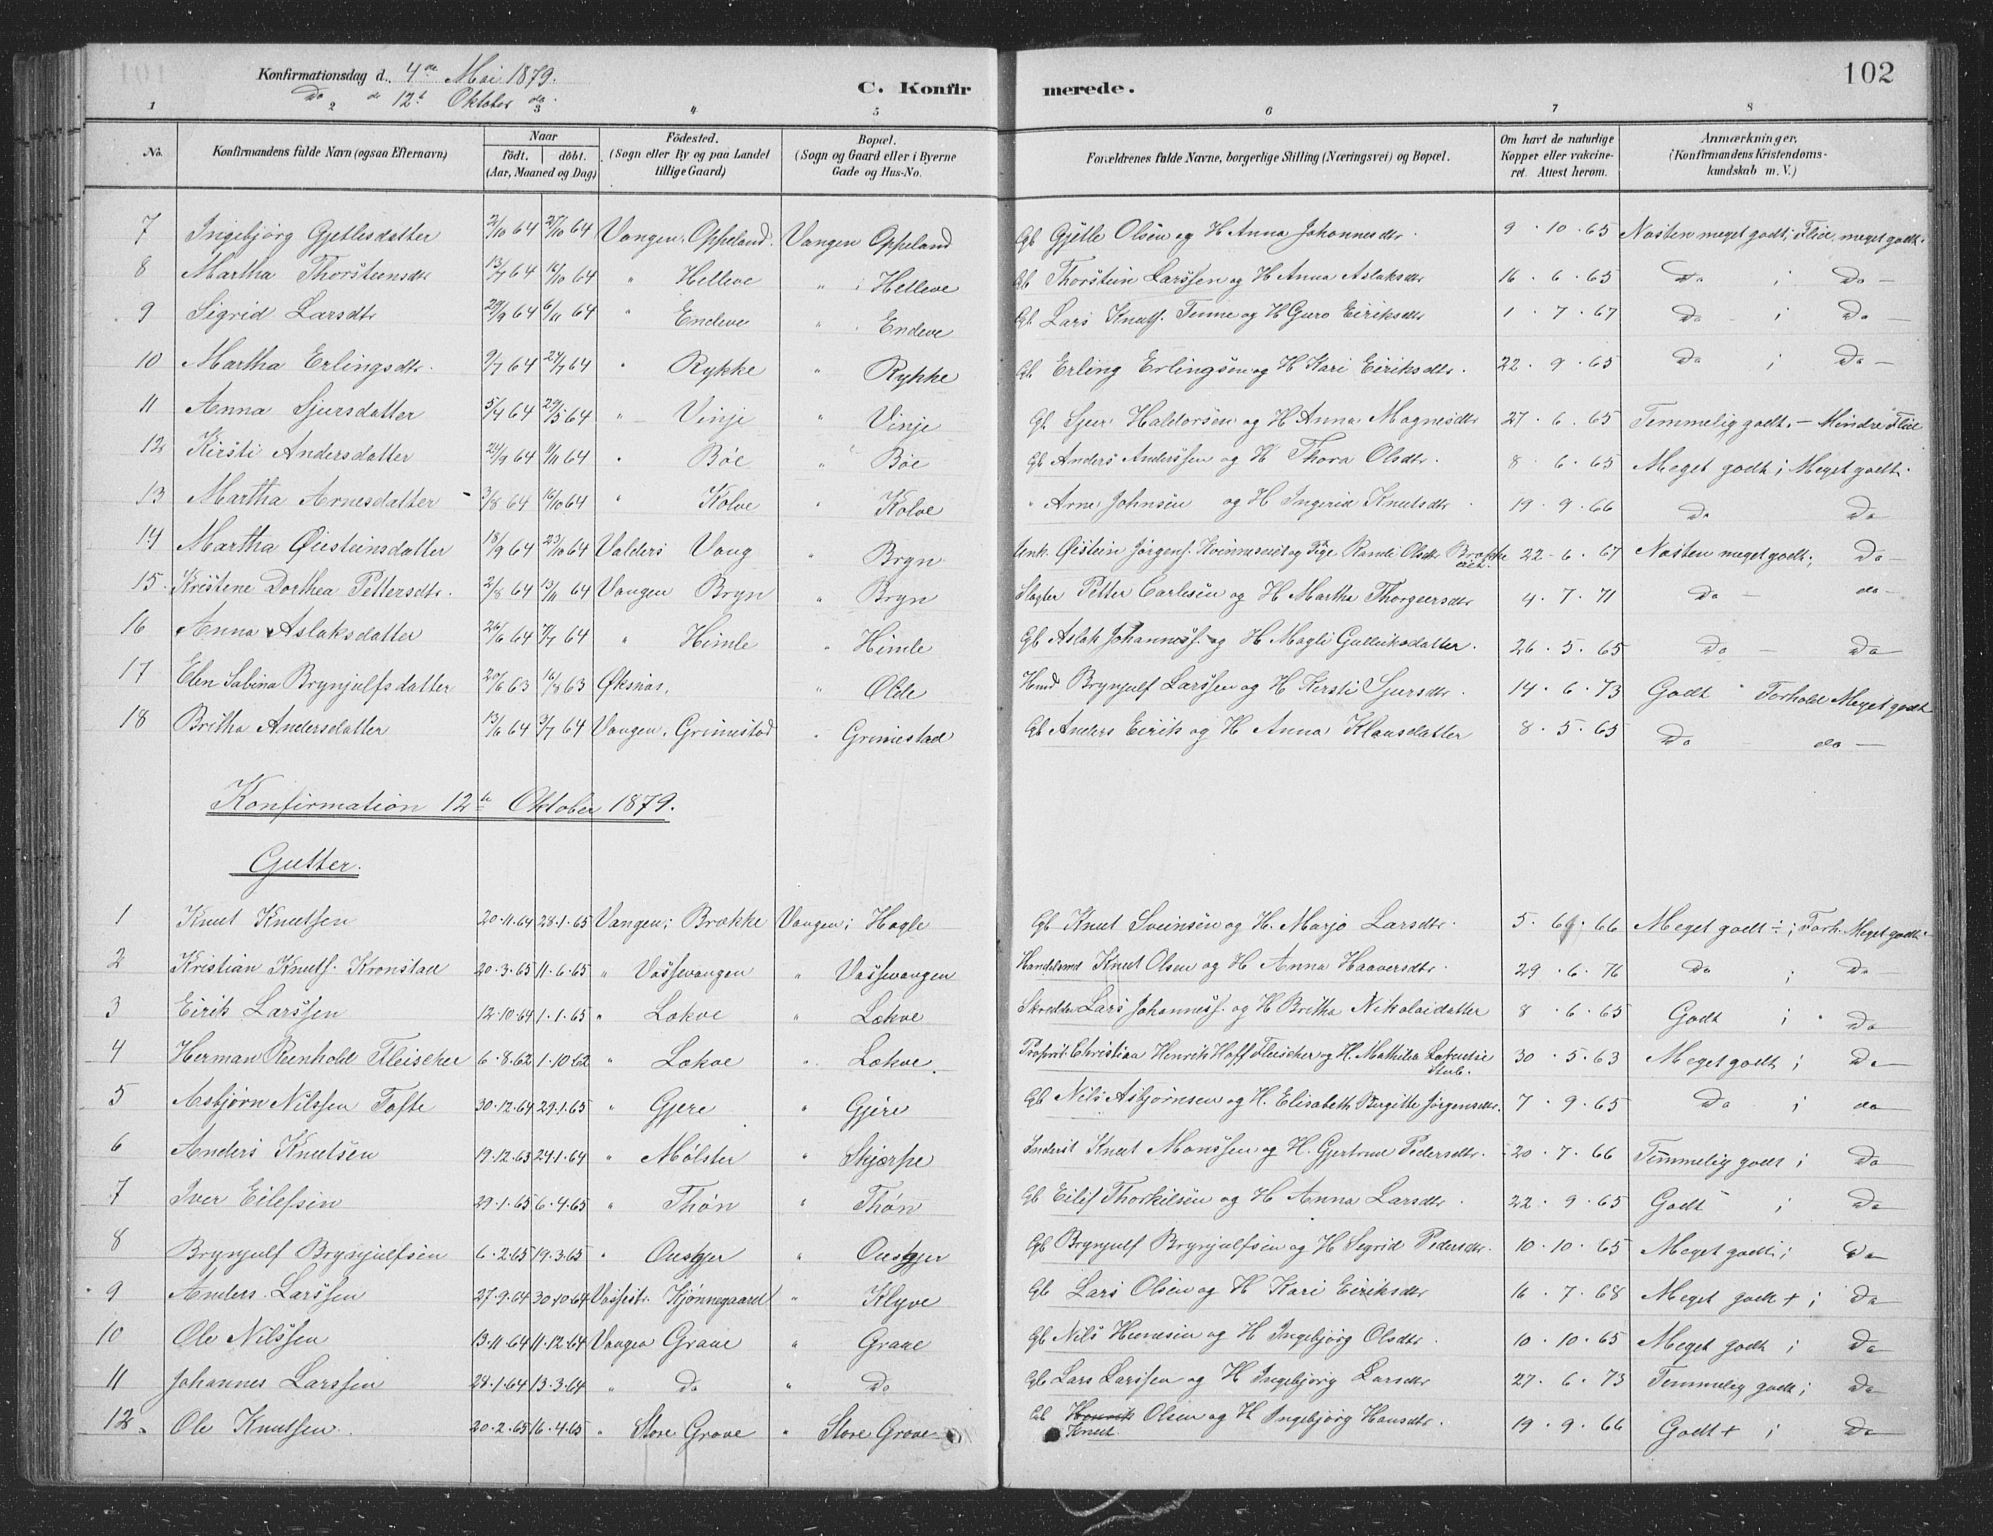 102
Konfirmationsdag d. 4de Mai 1879.
Do de 12te Oktober do.
C. Konfir merede.
1 2 3 4 5 6 7 8
No.
Konfirmandens fulde Navn (ogsaa Efternavn)
Naar
født. døbt.
(Aar, Maaned og Dag)
Födested.
(Sogn eller By og paa Landet
tillige Gaard)
Bopæl.
(Sogn og Gaard eller i Byerne
Gade og Hus-No.
Forældrenes fulde Navne, borgerlige Stilling (Næringsvei) og Bopæl.
Om havt de naturlige
Kopper eller vakcine-
ret. Attest herom.
Anmærkninger,
(Konfirmandens Kristendoms-
kundskab m. V.)
7 Ingebjørg Gjetlesdatter 2/10 64 27/10 64 Vangen, Oppeland. Vangen Oppeland Gb Gjetle Olsen og H Anna Johannesdtr. 9 · 10 · 65 Næsten meget godt; Flid, meget godt.
8 Martha Thorsteinsdtr 13/7 64 16/10 64 " Helleve " Helleve Gb Thorstein Larssen og H Anna Aslaksdtr 16 · 6 · 65 Do ; Do —
9 Sigrid Larsdtr 29/9 64 6/11 64 " Endeve " Endeve Gb Lars Knuts. Tenne og H Guro Eiriksdtr 1 · 7 · 67 Do - ; Do —
10 Martha Erlingsdtr. 9/7 64 24/7 64 " Rykke " Rykke Gb Erling Erlingsen og H Kari Eiriksdtr. 22 · 9 · 65 Do ; Do —
11 Anna Sjursdatter 5/4 64 29/5 64 " Vinje " Vinje Gb Sjur Haldorsen og H Anna Magnesdtr 27 · 6 · 65 Temmelig godt. — Mindre Flid
12 Kirsti Andersdatter 29/9 64 9/11 64 " Bøe " Bøe Gb Anders Anderssen og H Thora Olsdtr. 8 · 6 · 65 Meget godt ; Meget godt.
13 Martha Arnesdatter 3/8 64 16/10 64 " Kolve " Kolve " Arne Johnsen og H Ingerid Knutsdtr 19 · 9 · 66 Do Do
14 Martha Øisteinsdatter 18/9 64 23/10 64 Valders Vang " Bryn Unk. Øistein Jørgens. Kvinneseit og Pige Randi Olsdtr Brække eiet. 22 · 6 · 67 Næsten meget godt; Do
15 Kristene Dorthea Pettersdtr. 2/8 64 13/11 64 Vangen Bryn " Bryn Slagter Petter Carlesen og H Martha Thorgersdtr 4 · 7 · 71 Do — do —
16 Anna Aslaksdatter 26/6 64 7/7 64 " Himle " Himle Gb Aslak Johanness. og H Magli Gulliksdatter. 26 · 5 · 65 Do — Do
17 Elen Sabina Brynjulfsdatter 20/6 63 16/8 63 Øksnæs, " Olde Hmd Brynjulf Larssen og H Kirsti Sjursdtr. 14 · 6 · 73 Godt Forhold Meget godt
18 Britha Andersdatter 13/6 64 3/7 64 Vangen. Grimestad " Grimestad Gb Anders Eiriks og H Anna Klausdatter 8 · 5 · 65 Do — do —
Konfirmation 12te Oktober 1879.
Gutter.
1 Knut Knutsen 20·11·64 28·1·65 Vangen; Brække Vangen; Hagle Gb Knut Sveinsen og H. Marjo Larsdtr. 5 · 6 · 66 Meget godt ÷ ; Forh. Meget godt
2 Kristian Knuts. Kronstad 20·3·65 11·6·65 " Vossevangen " Vossevangen Handelsmd Knut Olsen og H Anna Haaversdtr. 29 · 6 · 76 Do ; Do —
3 Eirik Larssen 12·10·64 1·1·65 " Lekve " Lekve Skrædder Lars Johanness. og H Britha Nikolaidatter 8 · 6 · 65 Godt ; Do
4 Herman Reinholdt Fleischer 6·8·62 1·10·62 " Lekve " Lekve. Proprit. Christian Henrik Hoff Fleischer og H. Mathilda Stub. 30 · 5 · 63 Meget godt ; Do
5 Asbjørn Nilssen Tofte 30·12·64 29·1·65 " Gjere " Gjere Gb Nils Asbjørnsen og H. Elisabeth Bergitte Jørgensdtr. 7 · 9 · 65 Do ; do
6 Anders Knutsen 19·12·63 24·1·64 " Mølster " Skjerpe Inderst Knut Monssen og H. Gjertrud Pedersdtr. 20 · 7 · 66 Temmelig godt ; Do
7 Iver Eilefsen 29·1·65 6·4·65 " Thøn " Thøn Gb Eilif Thorkilsen og H Anna Larsdtr. 22 · 9 · 65 Godt ; Do
8 Brynjulf Brynjulfsen 6·2·65 19·3·65 " Ouestgjer " Ouestgjer Gb Brynjulf Brynjulfsen og H Sigrid Pedersdtr. 10 · 10 · 65 Meget godt ; Do
9 Anders Larssen 27·9·64 30·10·64 Vossestr. Kjønnegaard " Klyve Gb Lars Olsen og H Kari Eiriksdtr 16 · 7 · 68 Meget godt + ; Do
10 Ole Nilssen 13·11·64 11·12·64 Vangen Graue " Graue Gb Nils og H Ingebjørg Olsdtr. 10 · 10 · 65 Meget godt ; Do
11 Johannes Larssen 28·1·64 13·3·64 " Do " Do Gb Lars Larssen og H Ingebjørg Larsdtr 27 · 6 · 73 Temmelig godt ; Do
12. Ole Knutsen. 20·2·65 16·4·65 " Store Grove " Store Grove Gb Henrik Olsen og H Ingebjørg Hansdtr. 19 · 9 · 66 Godt + ; Do
Knut